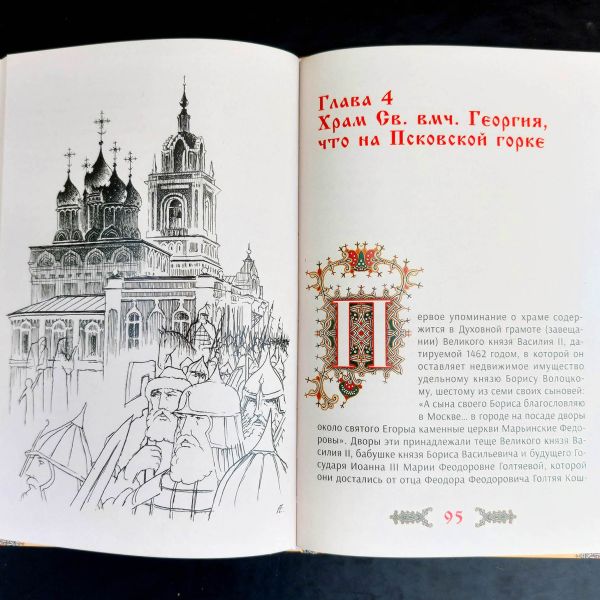 Глава 4
Храм Св. вмч. Георгия,
что на Псковской горке
Первое упоминание о храме содер-
жится в Духовной грамоте (завеща-
нии) Великого князя Василия II, да-
тируемой 1462 годом, в которой он
оставляет недвижимое имущество
удельному князю Борису Волоцко-
му, шестому из семи своих сыновей:
«А сына своего Бориса благословляю
в Москве... в городе на посаде дворы
около святого Егорья каменные церкви Марьинские Федо-
ровы». Дворы эти принадлежали теще Великого князя Ва-
силия II, бабушке князя Бориса Васильевича и будущего Го-
сударя Иоанна III Марии Феодоровне Голтяевой, которой
они достались от отца Федора Феодоровича Голтяя Кош-
95